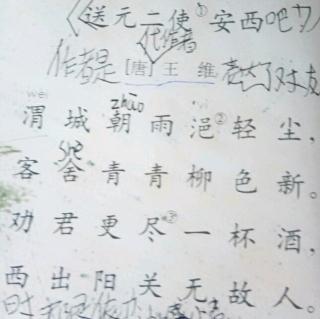 《送元二使①安西吧》
代诗者
作者是[唐]王 维 表达了对友
wèi zhāo yì
渭城朝雨浥②轻尘，
shè
客舍青青柳色新。
劝君更尽③一杯酒，
西出阳关无故人。